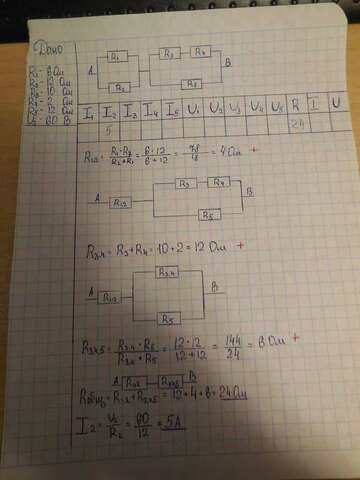 Дано
R₁ - 6 Ом
R₂ - 12 Ом
R₃ - 10 Ом
R₄ - 2 Ом
R₅ - 12 Ом
60 В
R₁ R₃ R₄
A B
R₂ R₅
I₁ I₂ I₃ I₄ I₅ U₁ U₂ U₃ U₄ U₅ R I U
5 24
R₁₂ = R₁·R₂ / R₂+R₁ = 6·12 / 6+12 = 72 / 18 = 4 Ом +
R₃ R₄
A R₁₂ B
R₅
R₃,₄ = R₃ + R₄ = 10 + 2 = 12 Ом +
R₃,₄
A R₁₂ B
R₅
R₃₄₅ = R₃,₄ · R₅ / R₃,₄ + R₅ = 12·12 / 12+12 = 144 / 24 = 6 Ом +
A R₁₂ R₃₄₅ B
Rобщ = R₁₂ + R₃₄₅ = 12 + 4 + 6 = 24 Ом
I₂ = U / R₂ = 60 / 12 = 5 А